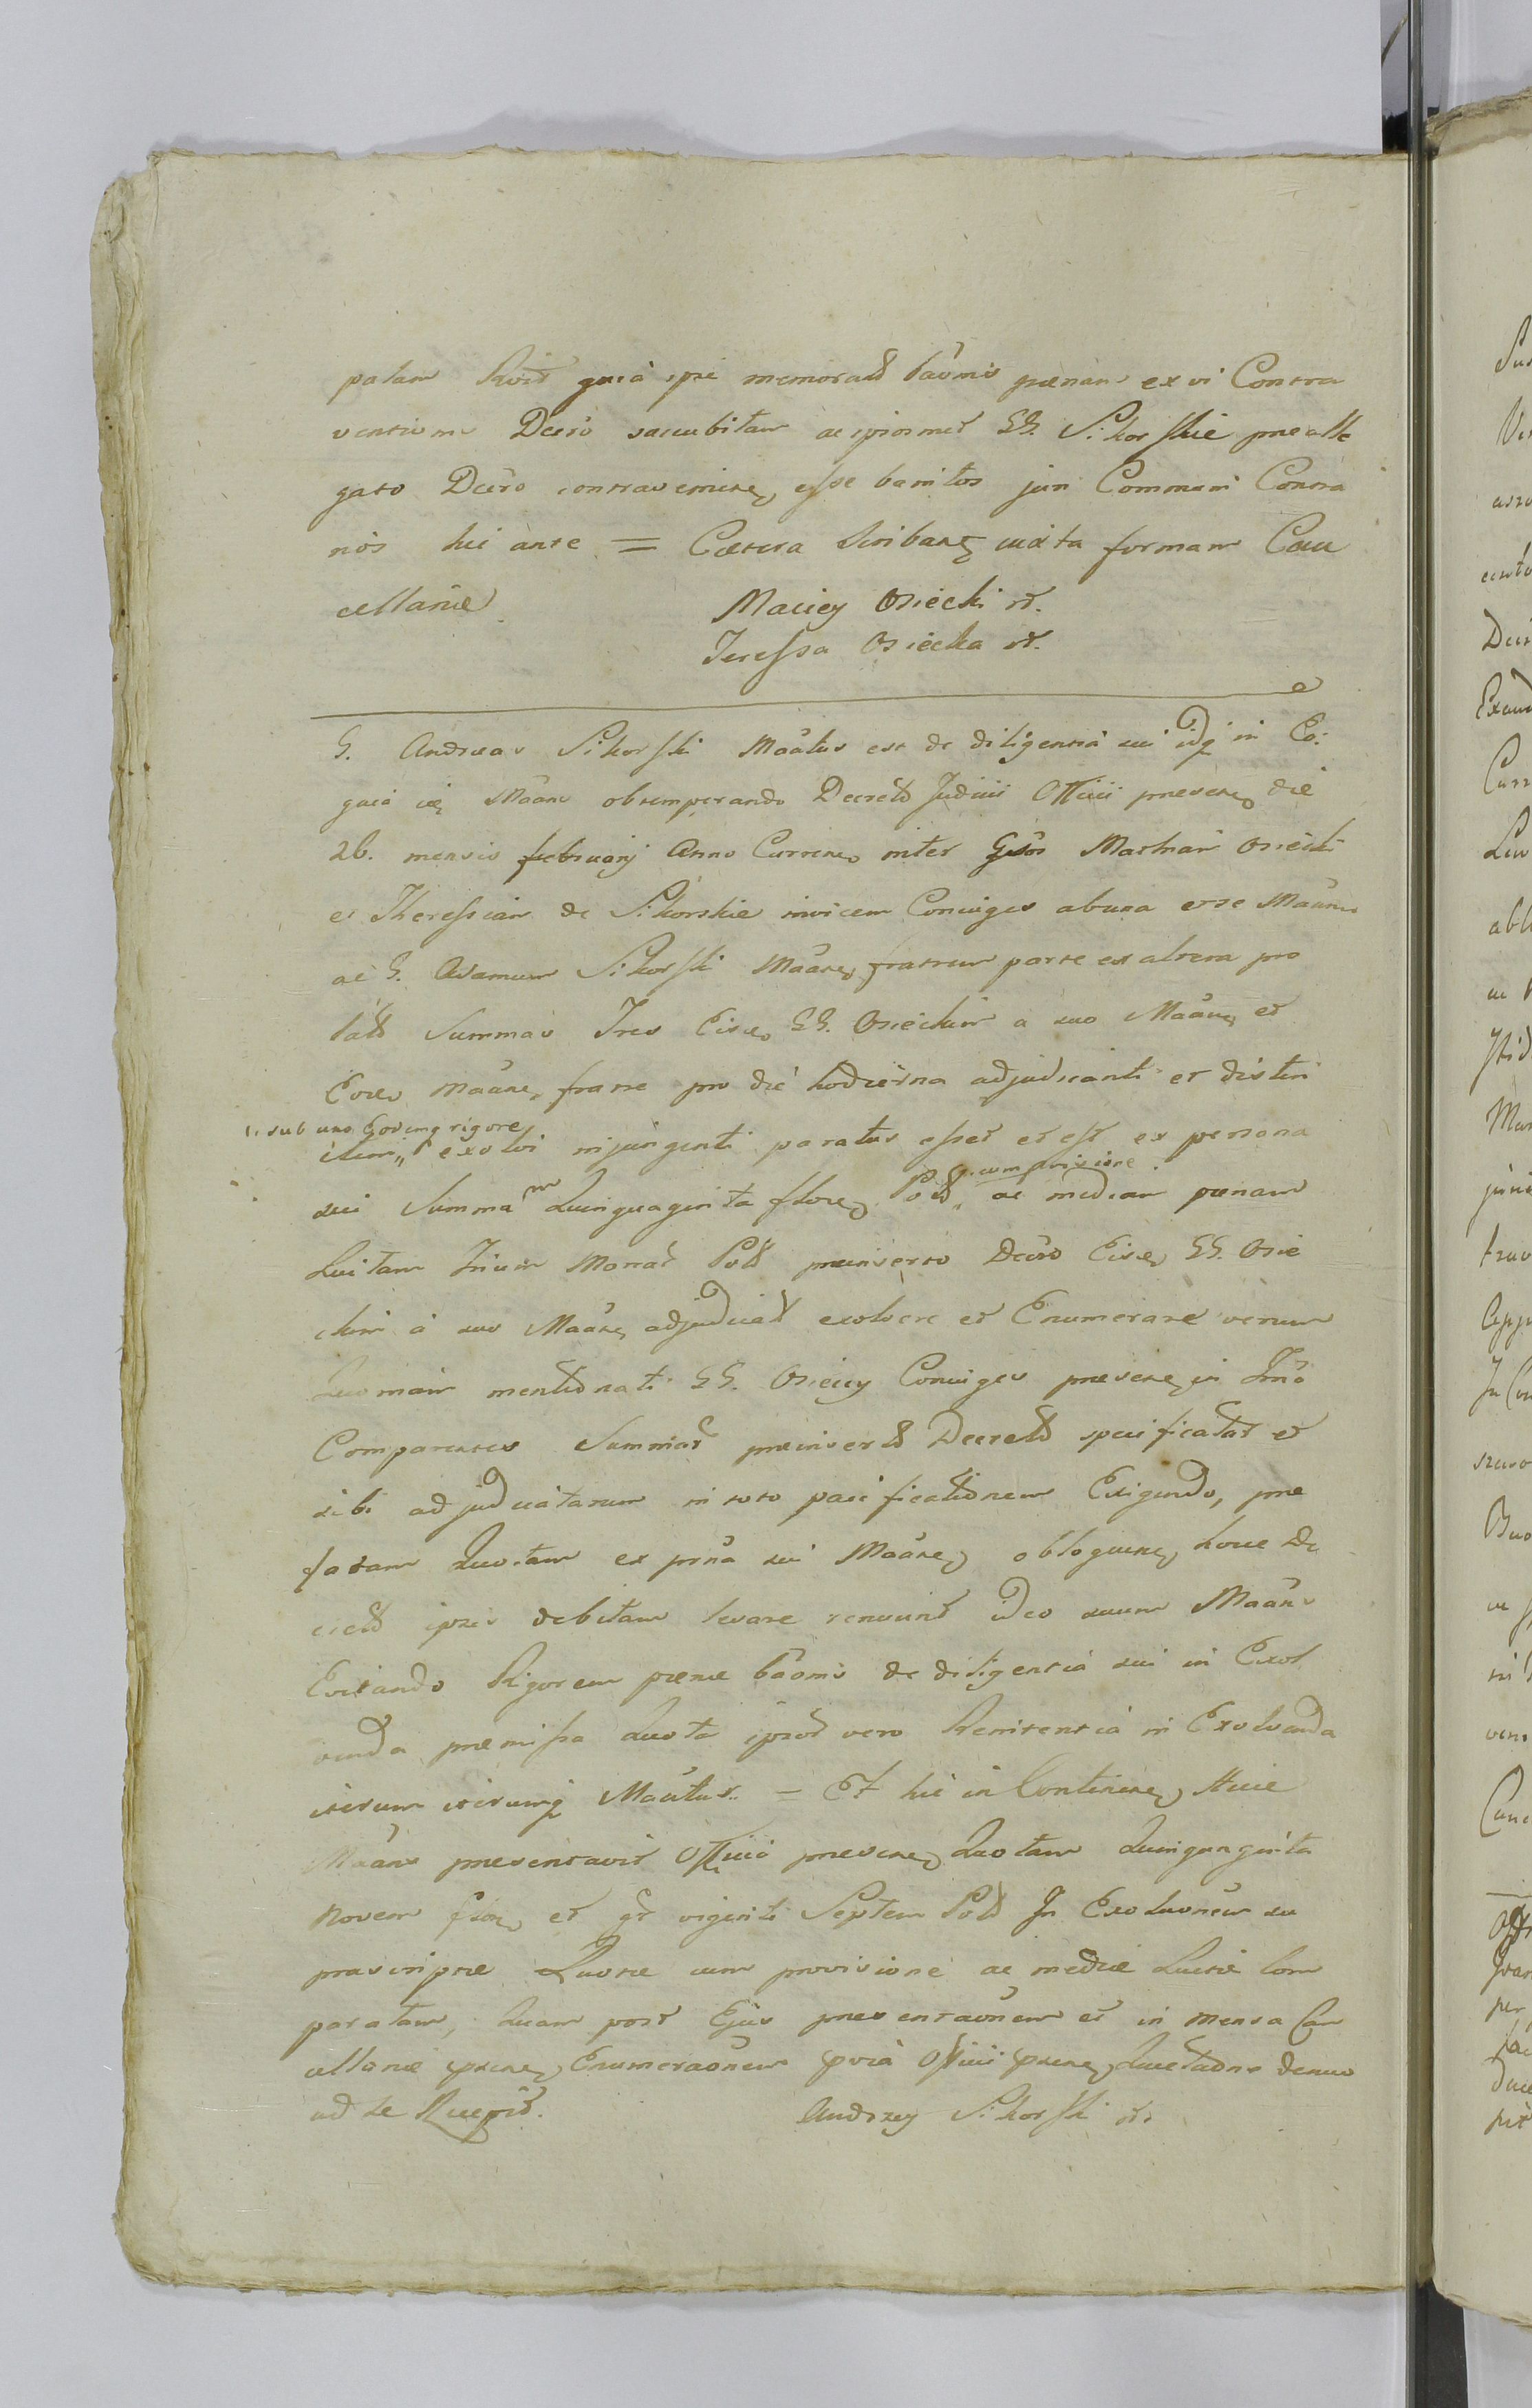 palam quia ipse memorato baonis poenam ex vi Contra
ventione Decro succubitam ac ipsosmet GG. Sikorskie prealle
gato Decro contravenien esse banitos juri Communi Contra
nos hic ante = Caetera scribantur iuxta formam Can
cellariae Maciey Osiecki
Teressa Osiecka
G. Andreas Sikorski Maatus est de diligentia sui idq in Eo:
quia is Maans obtemperando Decreto Judicii Officii presentis die
26. mensis februarij Anno Currente inter Gsos Mathiam Osiecki
et Theressiam de Sikorskie invicem Coniuges ab una et se Maante
ac G. Adamum Sikorski Maantis fratrem parte ex altera pro
lato Summas Tres Eisdem GG. Osieckim a suo Maante et
Eodem Maantis fratre pro die hodierna adjudicanti et distin
"sub uno Eodemq rigore
ctim" exolvi injungenti paratus esset et est ex persona
sui Summam Quinquaginta floren Pol "cum provisione ac mediam poenam
Luitam Trium Marcar Pol preinserto Decro Eisdem GG. Osie
ckim a suo Maante adjudicat exolvere et Enumerare verum
Quoniam mentionati GG. Osieccy Coniuges presentes in Trmo
Comparentes Summar preinserto Decreto specificatar et
sibi adjudicatarum in toto pacificationem Exigendo, pre
fatam Quotam ex prna sui Maantis obloquen hocce De
creto ipsis debitam levare renuunt ideo suum Maans
Evitando Rigorem poenae baonis de diligentia sui in Exol
venda premissa Quota ipsor vero Renitentia in Exolvenda
iterum iterumq Maatur. = Et hic in Continenti Hicce
Maans presentavit Officio presenti Quotam Quinquaginta
Novem floren et gr viginti Septem Pol In Exoluonem su
prascriptae Quotae cum provisione ac mediae Luitae com
paratam, Quam post Ejus presentaonem et in mensa Can
cellariae psentis Enumeraonem pvia Officii psentis Quietaone denuo
ad se Recepit. Andrzey Sikorski